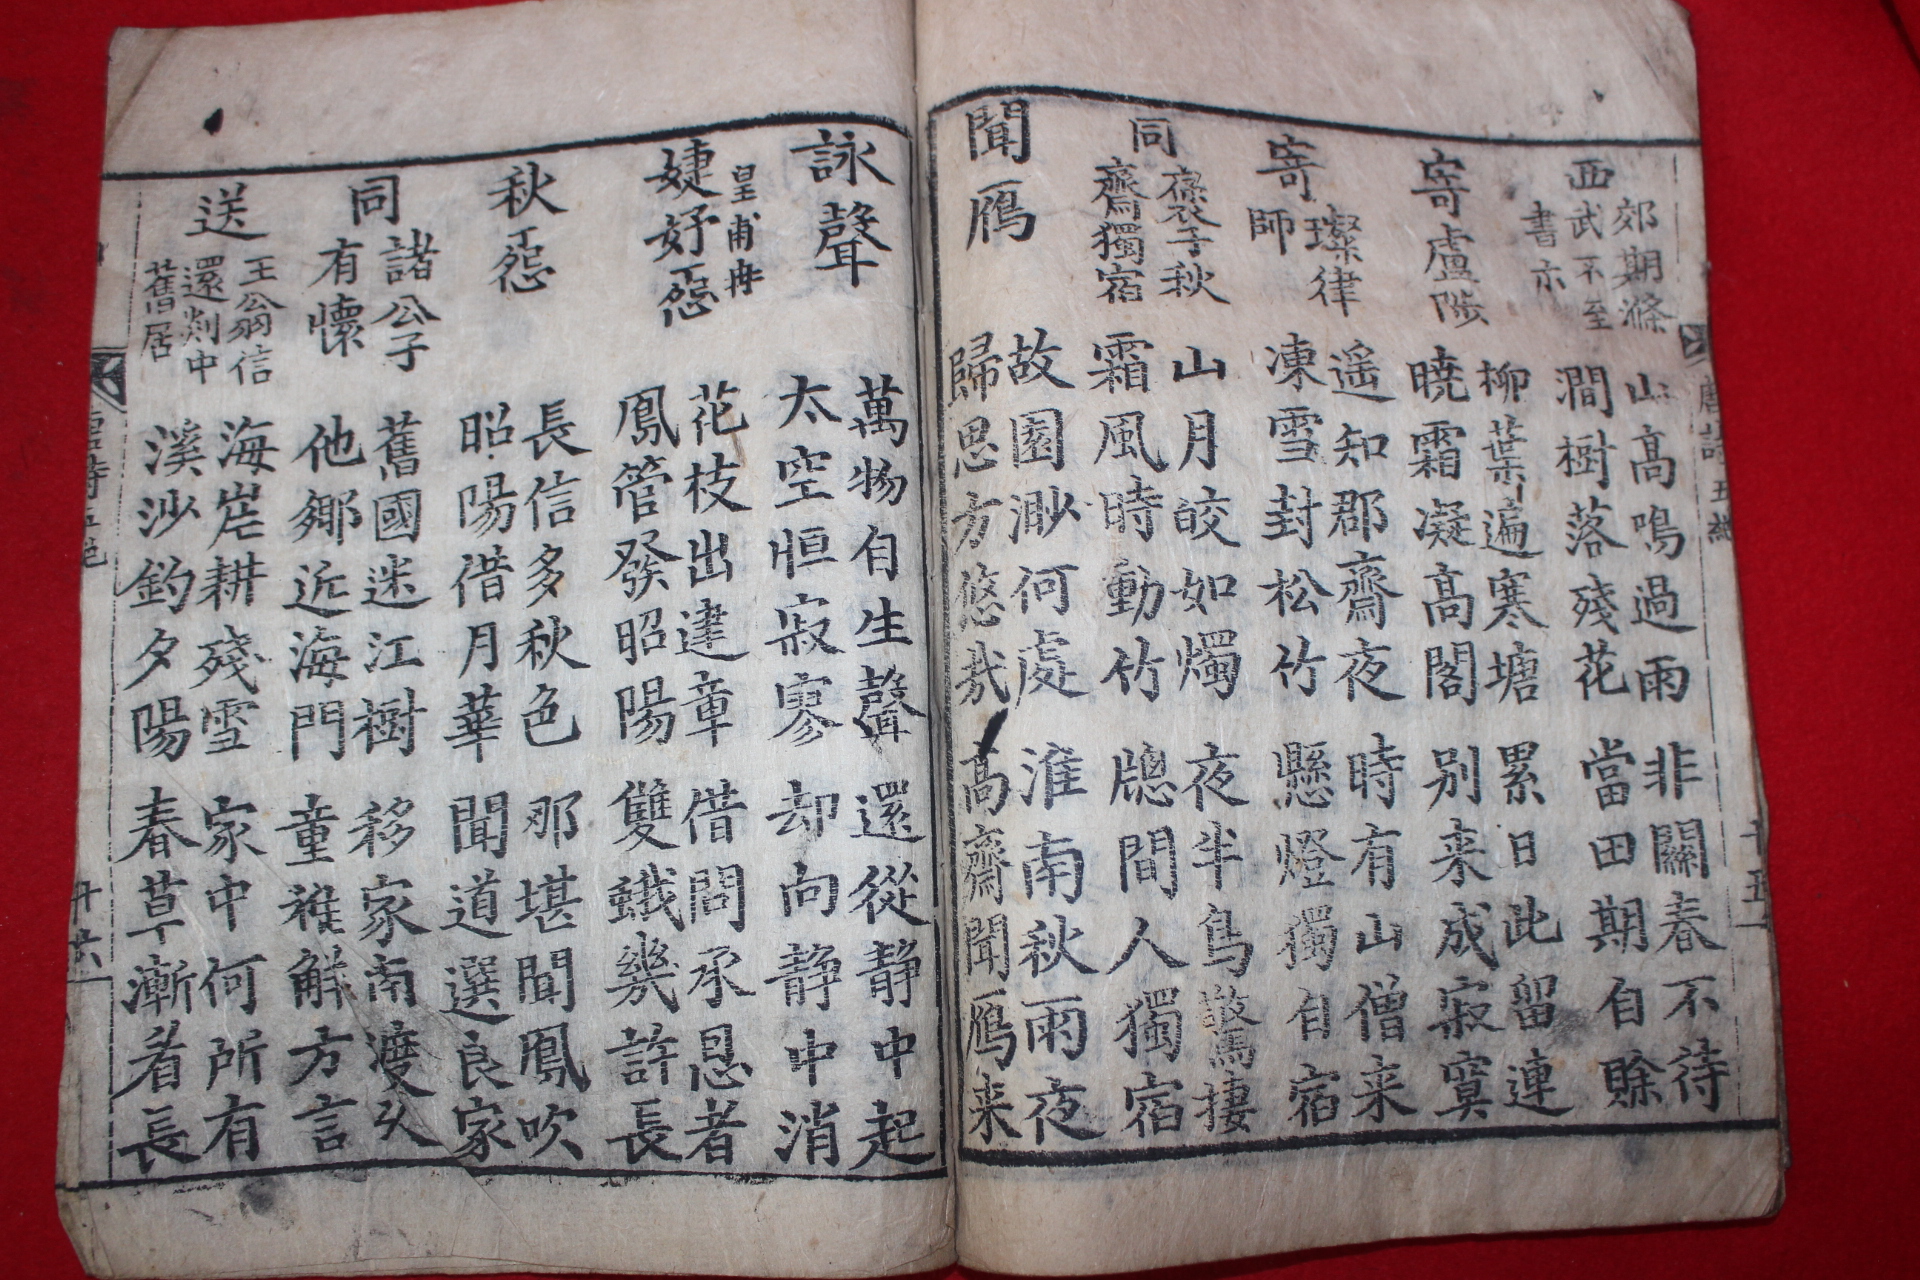 西郊期滁武不至書示
山高鳴過雨
澗樹落殘花
非關春不待
當田期自賖
寄盧陟
柳葉遍寒塘
暁霜凝高閣
累日此留連
別来成寂寞
寄璨律師
遥知郡齋夜
凍雪封松竹
時有山僧来
懸燈獨自宿
同褒子秋齋獨宿
山月皎如燭
霜風時動竹
夜半鳥驚捿
牕間人獨宿
聞鴈
故園渺何處
歸思方悠哉
淮南秋雨夜
高齋聞鴈来
詠聲
萬物自生聲
太空恒寂寥
還從靜中起
却向靜中消
皇甫冉
婕妤怨
花枝出建章
鳳管發昭陽
借問承恩者
雙蛾幾許長
秋怨
長信多秋色
昭陽借月華
那堪聞鳳吹
聞道選良家
同諸公子有懷
舊國迷江樹
他鄉近海門
移家南渡久
童稚解方言
送王翁信還剡中舊居
海岸耕殘雪
溪沙釣夕陽
家中何所有
春草漸看長
唐詩五絶
廿六